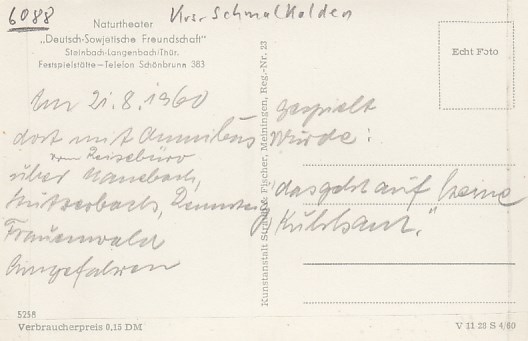 6088 Krs. Schmalkalden
Naturtheater
„Deutsch-Sowjetische Freundschaft"
Steinbach-Langenbach/Thür.
Festspielstätte—Telefon Schönbrunn 383
Echt Foto
Am 21.8.1960
dort mit Omnibus
vom Reisebüro
über Manebach,
Stützerbach,
Frauenwald
hingefahren
Kunstanstalt Straub & Fischer, Meiningen, Reg.-Nr. 23
gespielt
wurde:
„das geht auf keine
Kuhhaut."
5258
Verbraucherpreis 0,15 DM
V 11 28 S 4/60